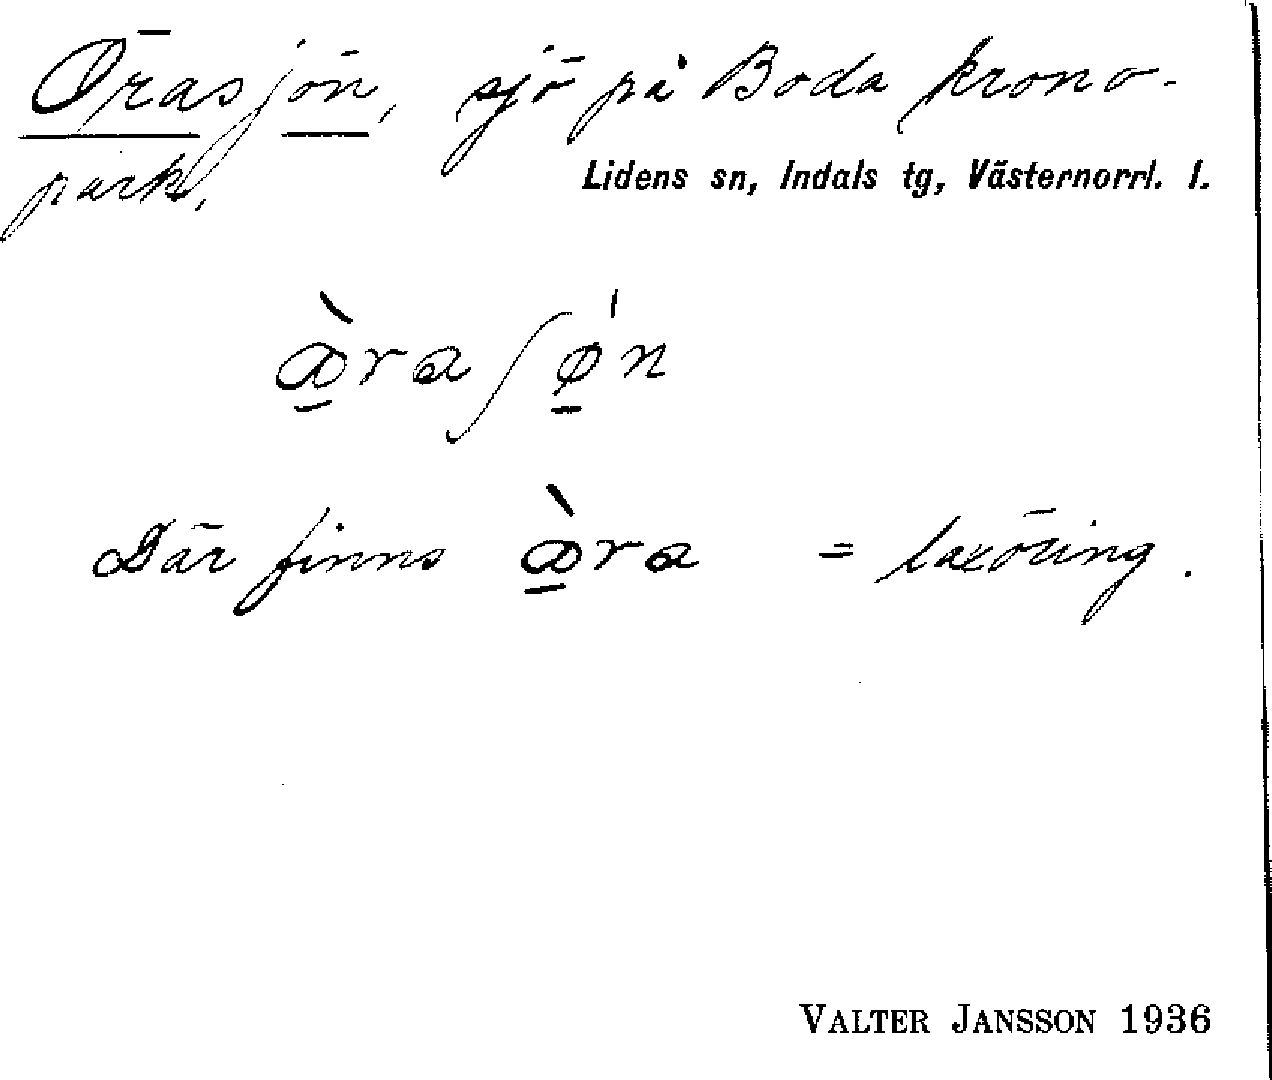 Örasjön, sjö på Boda krono-
park,
Lidens sn, Indals tg, Västernorrl. l.
Där finns = laxöring.
VALTER JANSSON 1936